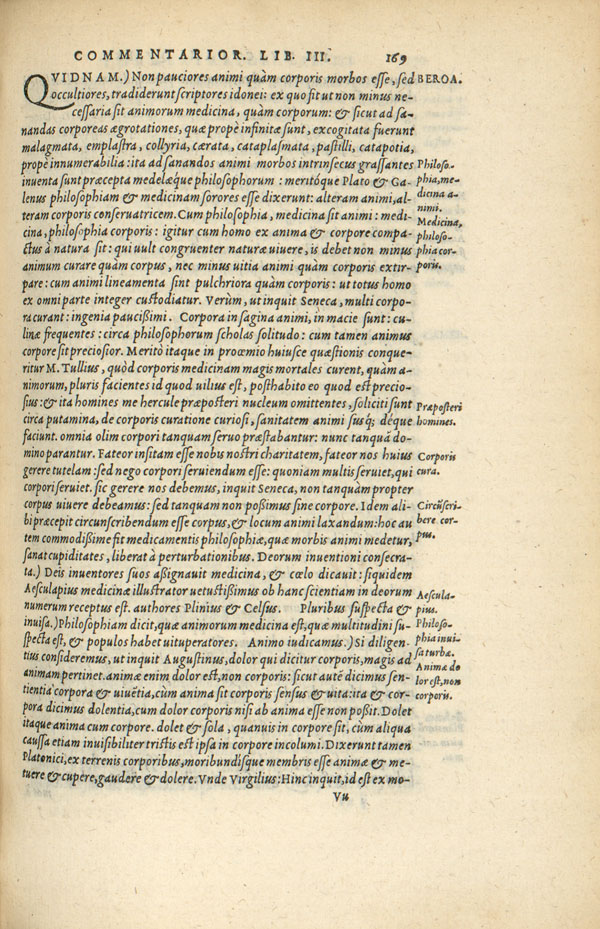 COMMENTARIOR. LIB. III. 169
QVIDNAM.) Non pauciores animi quàm corporis morbos esse, sed BEROA.
occultiores, tradiderunt scriptores idonei: ex quo fit ut non minus ne-
cessaria sit animorum medicina, quàm corporum: & sicut ad sa-
nandas corporeas ægrotationes, quæ propè infinitæ sunt, excogitata fuerunt
malagmata, emplastra, collyria, cærata, cataplasmata, pastilli, catapotia,
propè innumerabilia: ita ad sanandos animi morbos intrinsecus grassantes
inventa sunt præcepta medelæque philosophorum: meritóque Plato & Ga-
lenus philosophiam & medicinam sorores esse dixerunt: alteram animi, al-
teram corporis conseruatricem. Cum philosophia, medicina sit animi: medi-
cina, philosophia corporis: igitur cum homo ex anima & corpore compa-
ctus à natura sit: qui uult congruenter naturæ uiuere, is debet non minus
animum curare quàm corpus, nec minus uitia animi quàm corporis extir-
pare: cum animi lineamenta sint pulchriora quàm corporis: ut totus homo
ex omni parte integer custodiatur. Verùm, ut inquit Seneca, multi corpo-
ra curant: ingenia paucißimi. Corpora in sagina animi, in macie sunt: cu-
linæ frequentes: circa philosophorum scholas solitudo: cum tamen animus
corpore sit preciosior. Meritò itaque in proœmio huiusce quæstionis conque-
ritur M. Tullius, quòd corporis medicinam magis mortales curent, quàm a-
nimorum, pluris facientes id quod uilius est, posthabito eo quod est precio-
sius: & ita homines me hercule præposteri nucleum omittentes, soliciti sunt
circa putamina, de corporis curatione curiosi, sanitatem animi susq; deque
faciunt. omnia olim corpori tanquam seruo præstabantur: nunc tanquã do-
mino parantur. Fateor insitam esse nobis nostri charitatem, fateor nos huius
gerere tutelam: sed nego corpori seruiendum esse: quoniam multis seruiet, qui
corpori seruiet. sic gerere nos debemus, inquit Seneca, non tanquàm propter
corpus uiuere debeamus: sed tanquam non poßimus sine corpore. Idem ali-
bi præcepit circunscribendum esse corpus, & locum animi laxandum: hoc au
tem commodißime fit medicamentis philosophiæ, quæ morbis animi medetur,
sanat cupiditates, liberat à perturbationibus. Deorum inuentioni consecra-
ta.) Deis inuentores suos aßignauit medicina, & cœlo dicauit: siquidem
Aesculapius medicinæ illustrator uetustißimus ob hanc scientiam in deorum
numerum receptus est. authores Plinius & Celsus. Pluribus suspecta &
inuisa.) Philosophiam dicit, quæ animorum medicina est, quæ multitudini su-
specta est, & populos habet uituperatores. Animo iudicamus.) Si diligen-
tius consideremus, ut inquit Augustinus, dolor qui dicitur corporis, magis ad
animam pertinet. animæ enim dolor est, non corporis: sicut autẽ dicimus sen-
tientia corpora & uiuẽtia, cùm anima sit corporis sensus & uita: ita & cor-
pora dicimus dolentia, cum dolor corporis nisi ab anima esse non poßit. Dolet
itaque anima cum corpore. dolet & sola, quanuis in corpore sit, cùm aliqua
caussa etiam inuisibiliter tristis est ipsa in corpore incolumi. Dixerunt tamen
Platonici, ex terrenis corporibus, moribundisque membris esse animæ & me-
tuere & cupere, gaudere & dolere. Vnde Virgilius: Hinc inquit, id est ex mo-
Vu
Philoso-
phia, me-
dicina a-
nimi.
Medicina,
philoso-
phia cor-
poris.
Præposteri
homines.
Corporis
cura.
Circũscri-
bere cor-
pus.
Aescula-
pius.
Philoso-
phia inui-
sa turbæ.
Animæ do
lor est, non
corporis.